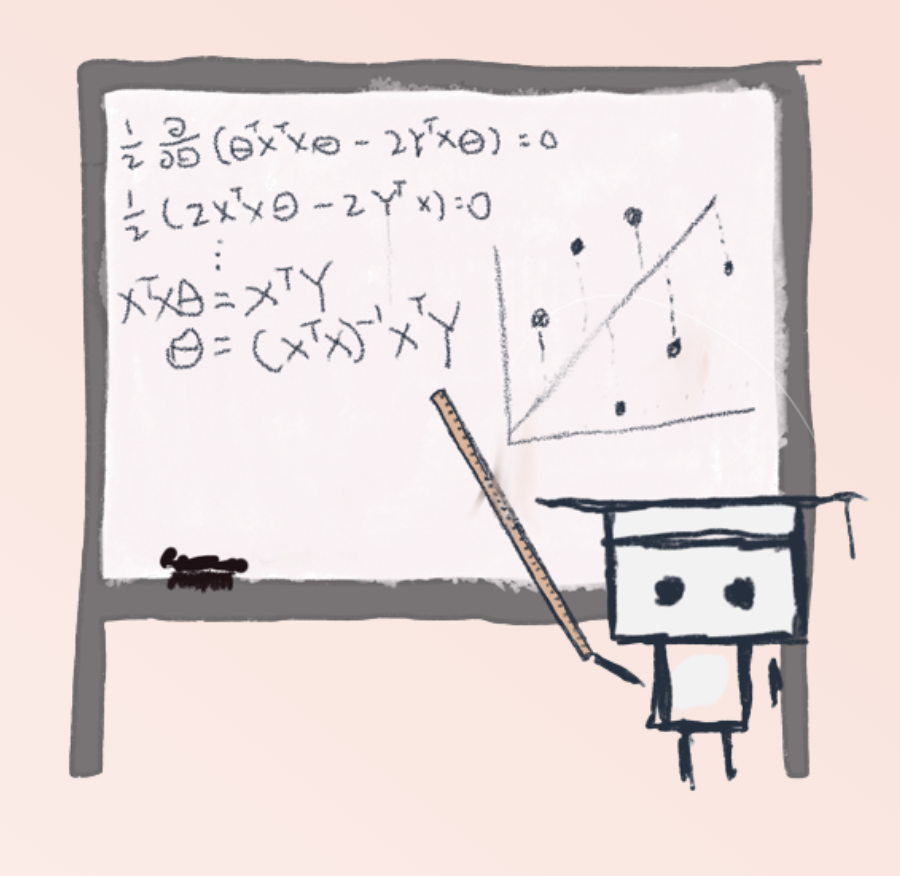 ½ ∂/∂θ (θᵀXᵀXθ - 2YᵀXθ) = 0
½ (2XᵀXθ - 2Yᵀx) = 0
⋮
XᵀXθ = XᵀY
θ = (XᵀX)⁻¹XᵀY